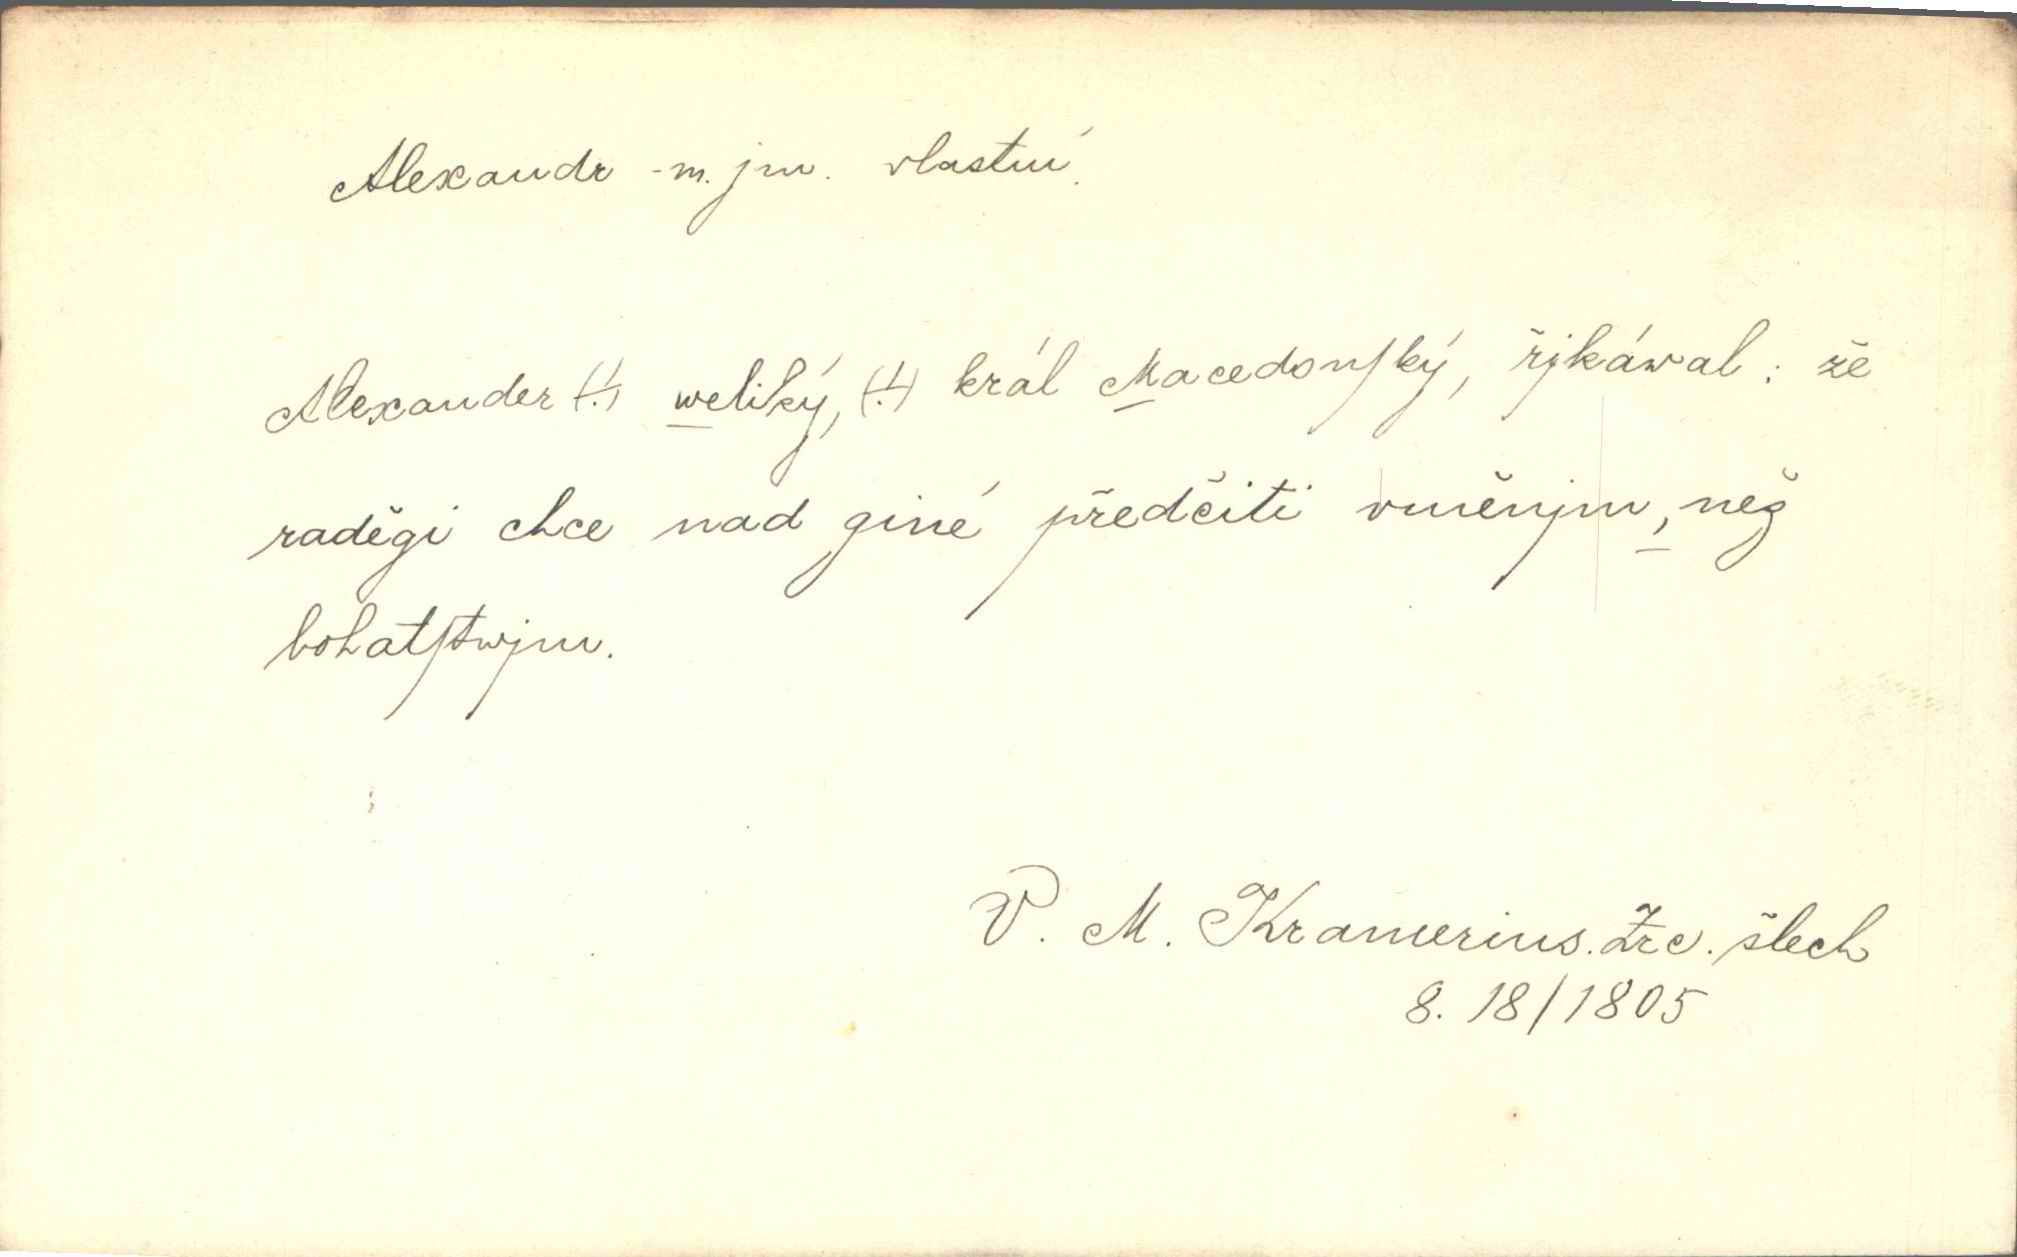 Alexandr -m. jm. vlastní.
Alexander (!) weliký, (!) král Macedonſký, řjkáwal: že
raděgi chce nad giné předčiti vměnjm, než
bohatſtwjm.
V. M. Kramerius. Zrc. šlech
8. 18/1805